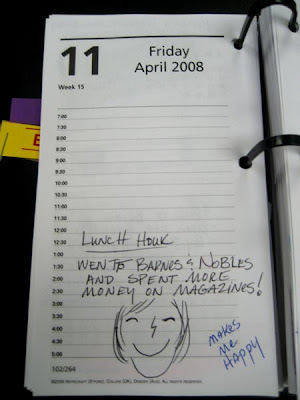 11
Friday
April 2008
Week 15
7:00
7:30
8:00
8:30
9:00
9:30
10:00
10:30
11:00
11:30
12:00
12:30
1:00
1:30
2:00
2:30
3:00
3:30
4:00
4:30
5:00
LUNCH HOUR
WENT TO BARNES & NOBLES
AND SPENT MORE
MONEY ON MAGAZINES!
MAKES
Me
HAPPY
102/264